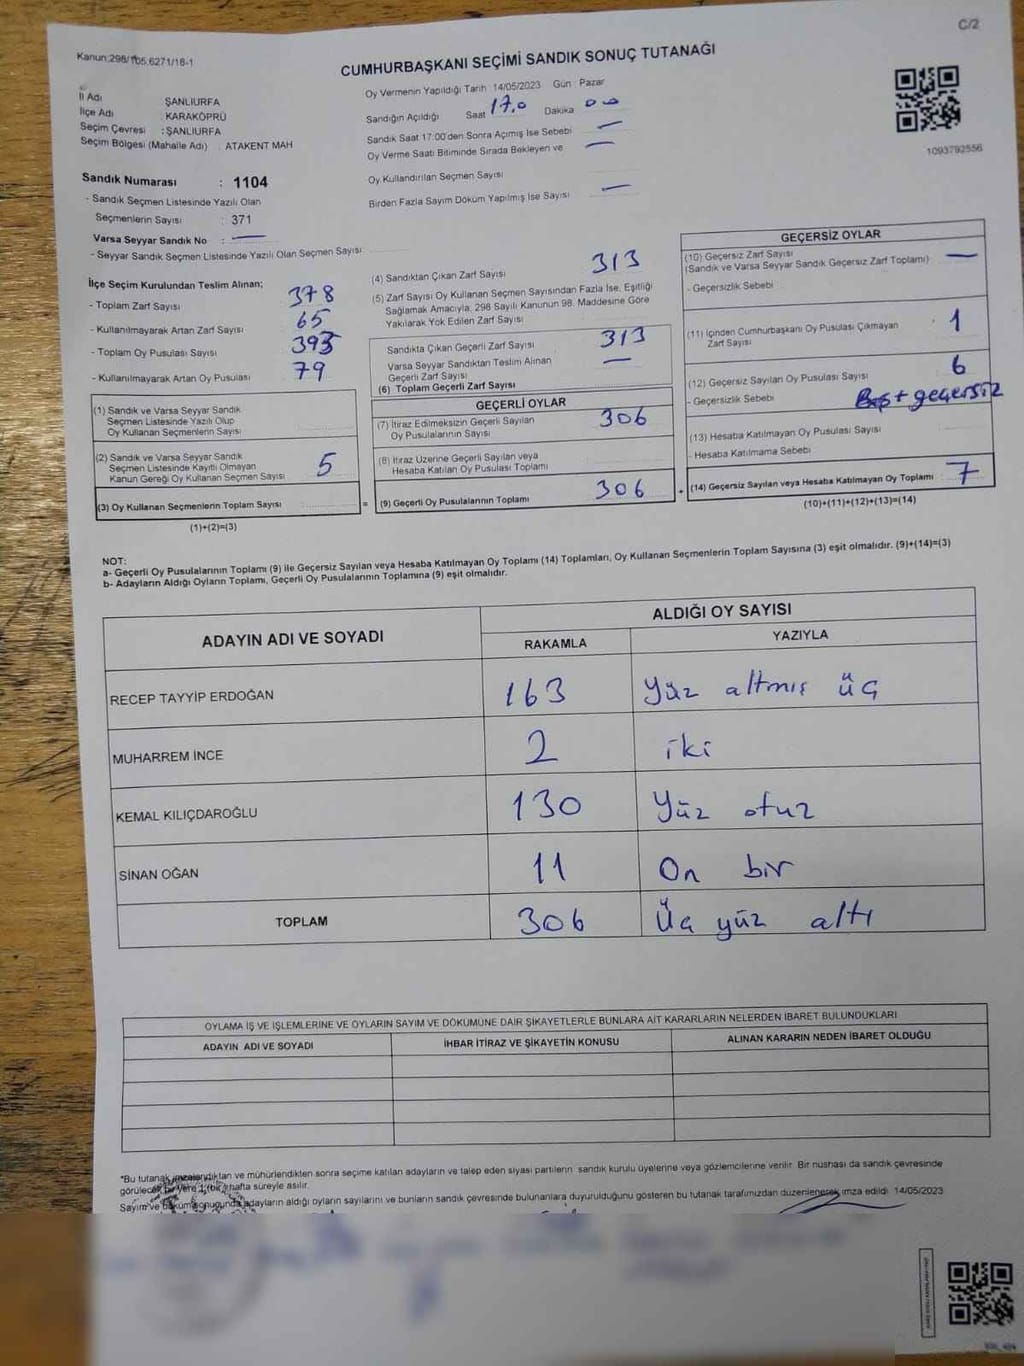 C/2
Kanun:298/105,6271/18-1
CUMHURBAŞKANI SEÇİMİ SANDIK SONUÇ TUTANAĞI
İl Adı ŞANLIURFA
İlçe Adı KARAKÖPRÜ
Seçim Çevresi : ŞANLIURFA
Seçim Bölgesi (Mahalle Adı) : ATAKENT MAH
Oy Vermenin Yapıldığı Tarih : 14/05/2023 Gün : Pazar
Sandığın Açıldığı Saat 17.0 Dakika 00
Sandık Saat 17:00'den Sonra Açımış İse Sebebi —
Oy Verme Saati Bitiminde Sırada Bekleyen ve —
Oy Kullandırılan Seçmen Sayısı
Birden Fazla Sayım Döküm Yapılmış İse Sayısı —
1093792556
Sandık Numarası : 1104
- Sandık Seçmen Listesinde Yazılı Olan
Seçmenlerin Sayısı : 371
Varsa Seyyar Sandık No : —
- Seyyar Sandık Seçmen Listesinde Yazılı Olan Seçmen Sayısı :
İlçe Seçim Kurulundan Teslim Alınan;
- Toplam Zarf Sayısı 378
- Kullanılmayarak Artan Zarf Sayısı 65
- Toplam Oy Pusulası Sayısı 393
- Kullanılmayarak Artan Oy Pusulası 79
(1) Sandık ve Varsa Seyyar Sandık
Seçmen Listesinde Yazılı Olup
Oy Kullanan Seçmenlerin Sayısı
(2) Sandık ve Varsa Seyyar Sandık
Seçmen Listesinde Kayıtlı Olmayan
Kanun Gereği Oy Kullanan Seçmen Sayısı 5
(3) Oy Kullanan Seçmenlerin Toplam Sayısı
(1)+(2)=(3)
(4) Sandıktan Çıkan Zarf Sayısı 313
(5) Zarf Sayısı Oy Kullanan Seçmen Sayısından Fazla İse, Eşitliği
Sağlamak Amacıyla; 298 Sayılı Kanunun 98. Maddesine Göre
Yakılarak Yok Edilen Zarf Sayısı
Sandıkta Çıkan Geçerli Zarf Sayısı 313
Varsa Seyyar Sandıktan Teslim Alınan
Geçerli Zarf Sayısı —
(6) Toplam Geçerli Zarf Sayısı
GEÇERLİ OYLAR
(7) İtiraz Edilmeksizin Geçerli Sayılan
Oy Pusulalarının Sayısı 306
(8) İtiraz Üzerine Geçerli Sayılan veya
Hesaba Katılan Oy Pusulası Toplamı
= (9) Geçerli Oy Pusulalarının Toplamı 306
GEÇERSİZ OYLAR
(10) Geçersiz Zarf Sayısı
(Sandık ve Varsa Seyyar Sandık Geçersiz Zarf Toplamı) —
- Geçersizlik Sebebi
(11) İçinden Cumhurbaşkanı Oy Pusulası Çıkmayan
Zarf Sayısı 1
(12) Geçersiz Sayılan Oy Pusulası Sayısı 6
- Geçersizlik Sebebi Boş + geçersiz
(13) Hesaba Katılmayan Oy Pusulası Sayısı
- Hesaba Katılmama Sebebi
+ (14) Geçersiz Sayılan veya Hesaba Katılmayan Oy Toplamı 7
(10)+(11)+(12)+(13)=(14)
NOT:
a- Geçerli Oy Pusulalarının Toplamı (9) ile Geçersiz Sayılan veya Hesaba Katılmayan Oy Toplamı (14) Toplamları, Oy Kullanan Seçmenlerin Toplam Sayısına (3) eşit olmalıdır. (9)+(14)=(3)
b- Adayların Aldığı Oyların Toplamı, Geçerli Oy Pusulalarının Toplamına (9) eşit olmalıdır.
ADAYIN ADI VE SOYADI ALDIĞI OY SAYISI
RAKAMLA YAZIYLA
RECEP TAYYİP ERDOĞAN 163 Yüz altmış üç
MUHARREM İNCE 2 iki
KEMAL KILIÇDAROĞLU 130 Yüz otuz
SİNAN OĞAN 11 On bir
TOPLAM 306 Üç yüz altı
OYLAMA İŞ VE İŞLEMLERİNE VE OYLARIN SAYIM VE DÖKÜMÜNE DAİR ŞİKAYETLERLE BUNLARA AİT KARARLARIN NELERDEN İBARET BULUNDUKLARI
ADAYIN ADI VE SOYADI İHBAR İTİRAZ VE ŞİKAYETİN KONUSU ALINAN KARARIN NEDEN İBARET OLDUĞU
*Bu tutanak imzalandıktan ve mühürlendikten sonra seçime katılan adayların ve talep eden siyasi partilerin sandık kurulu üyelerine veya gözlemcilerine verilir. Bir nüshası da sandık çevresinde
görülecek bir yere 1 (bir) hafta süreyle asılır.
Sayım ve döküm sonucunda adayların aldığı oyların sayılarını ve bunların sandık çevresinde bulunanlara duyurulduğunu gösteren bu tutanak tarafımızdan düzenlenerek imza edildi. 14/05/2023